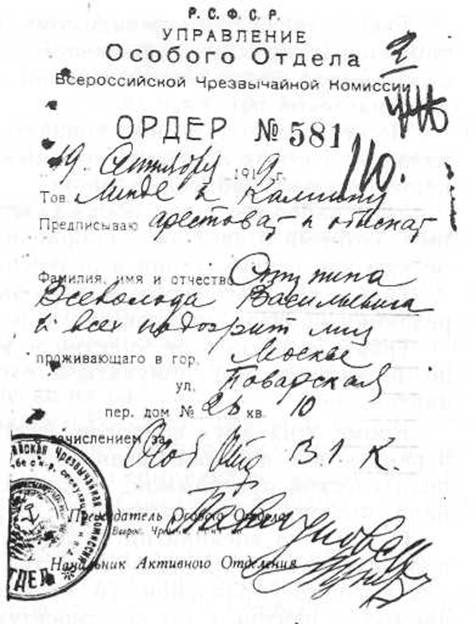 Р. С. Ф. С. Р.
УПРАВЛЕНИЕ
Особого Отдела
Всероссийской Чрезвычайной Комиссии
ОРДЕР № 581
19 1919
Тов. Линде и
Предписываю арестоват и обыскат
Фамилия, имя и отчество
Всеволода Васильевича
и всех подозрит лиц
проживающаго в гор. Москве
ул. Поварская
пер. дом № 26 кв. 10
с зачислением за
Ос Отд В. Ч. К.
Председатель Особого Отдела
Начальник Активного Отделения